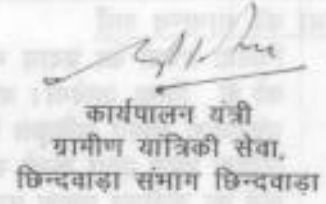 कार्यपालन यंत्री
ग्रामीण यांत्रिकी सेवा,
छिन्दवाड़ा संभाग छिन्दवाड़ा